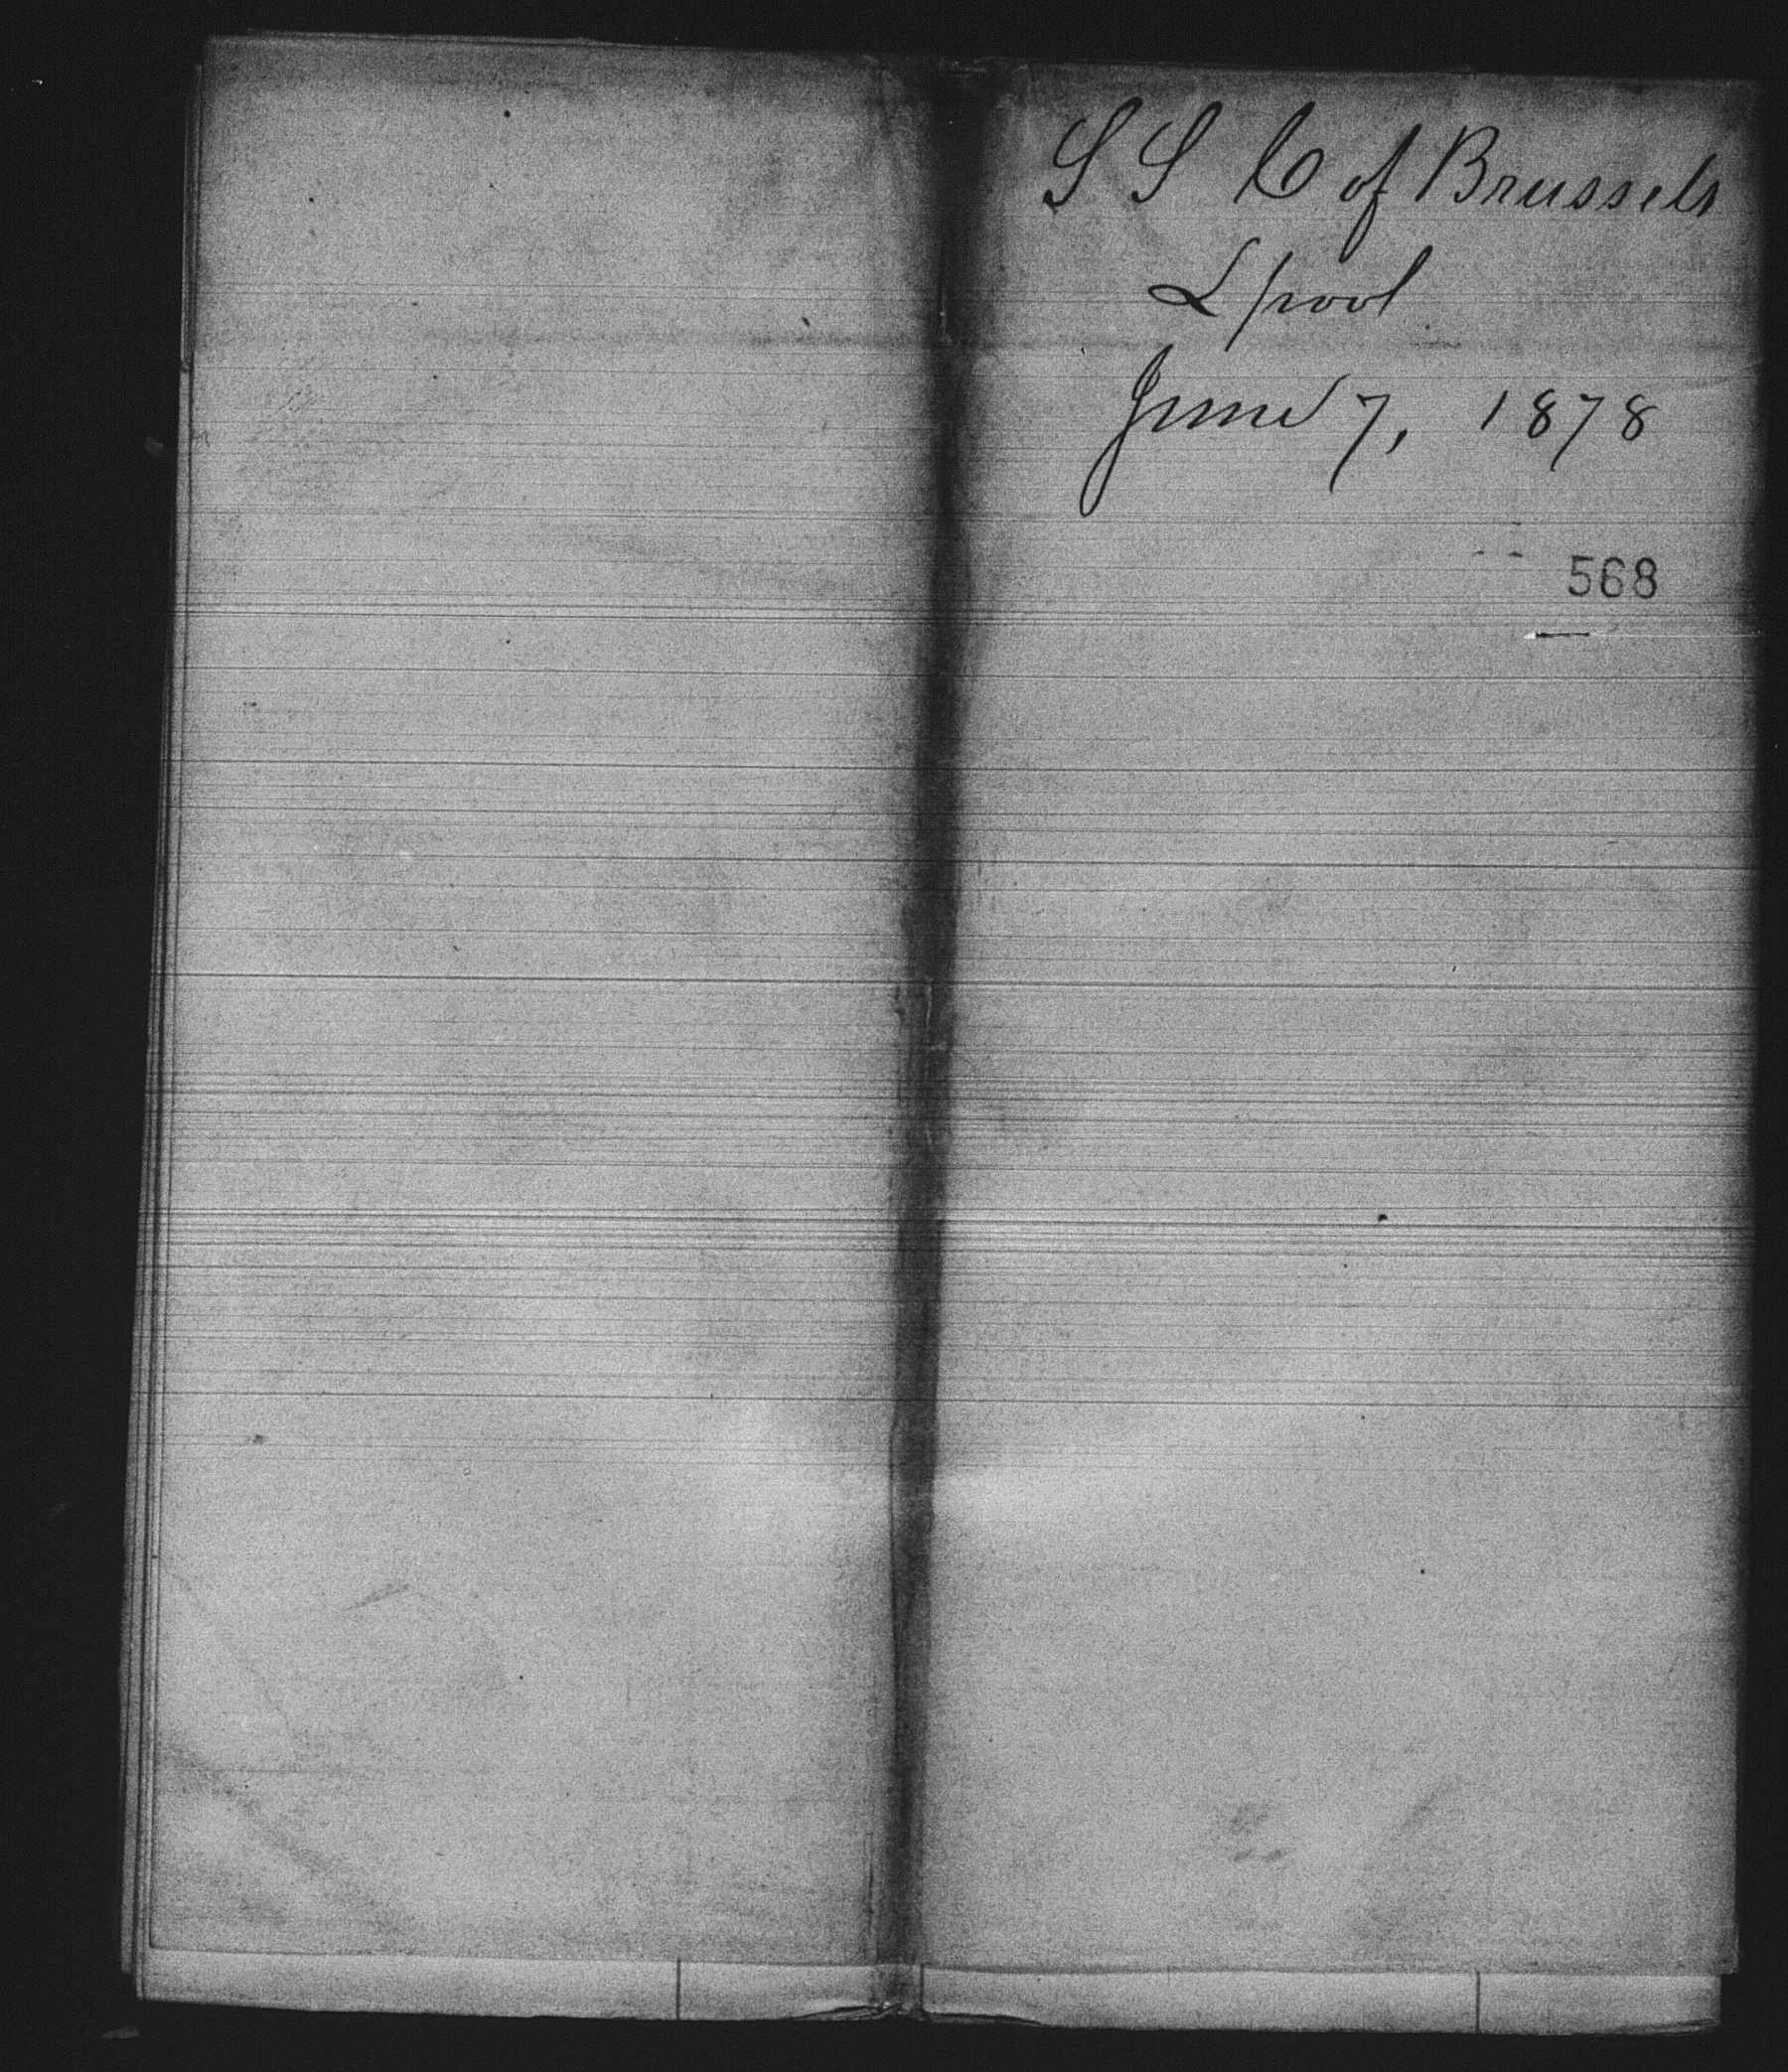 S S C of Brussels
Lpool
June 7, 1878
568